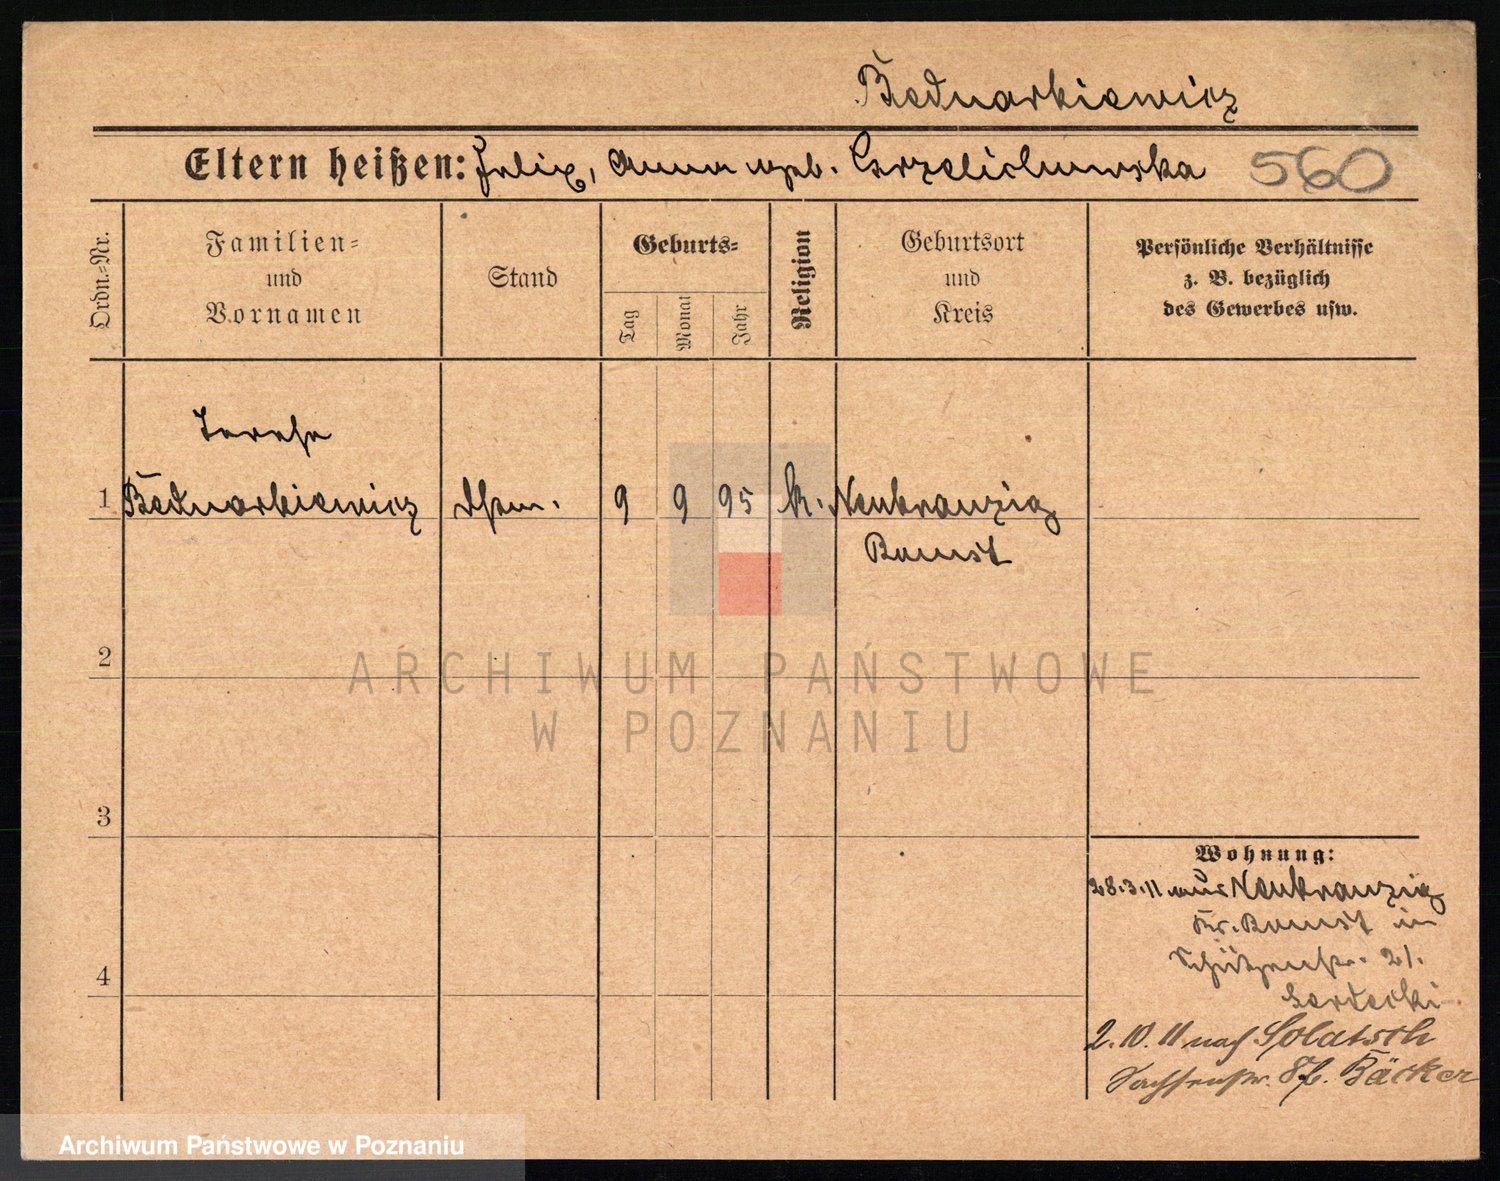 Bednarkiewicz
Eltern heißen: Felix, Anna geb. 560
Ordn.-Nr.
Familien-
und
Vornamen
Stand
Geburts-
Tag
Monat
Jahr
Religion
Geburtsort
und
Kreis
Persönliche Verhältnisse
z. B. bezüglich
des Gewerbes usw.
Therese
1 Bednarkiewicz 9 9 95 k. Neukranzig
Bomst
2
3
4
Wohnung:
28.3.11 aus Neukranzig
Kr. Bomst in
Schützenstr. 21.
2.10.11 nach Solatsch
Bäcker
ARCHIWUM PAŃSTWOWE
W POZNANIU
Archiwum Państwowe w Poznaniu